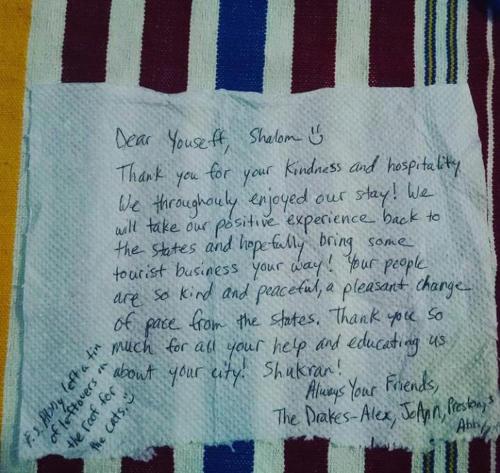 Dear Youseff, Shalom
Thank you for your kindness and hospitality
We throughouly enjoyed our stay! We
will take our positive experience back to
the states and hopefully bring some
tourist business your way! Your people
are so kind and peaceful, a pleasant change
of pace from the states. Thank you so
much for all your help and educating us
about your city! Shukran!
Always Your Friends,
The Drakes-Alex, JoAnn, Preston, &
Abby
left a tin
of leftovers on
the roof for
the cats.